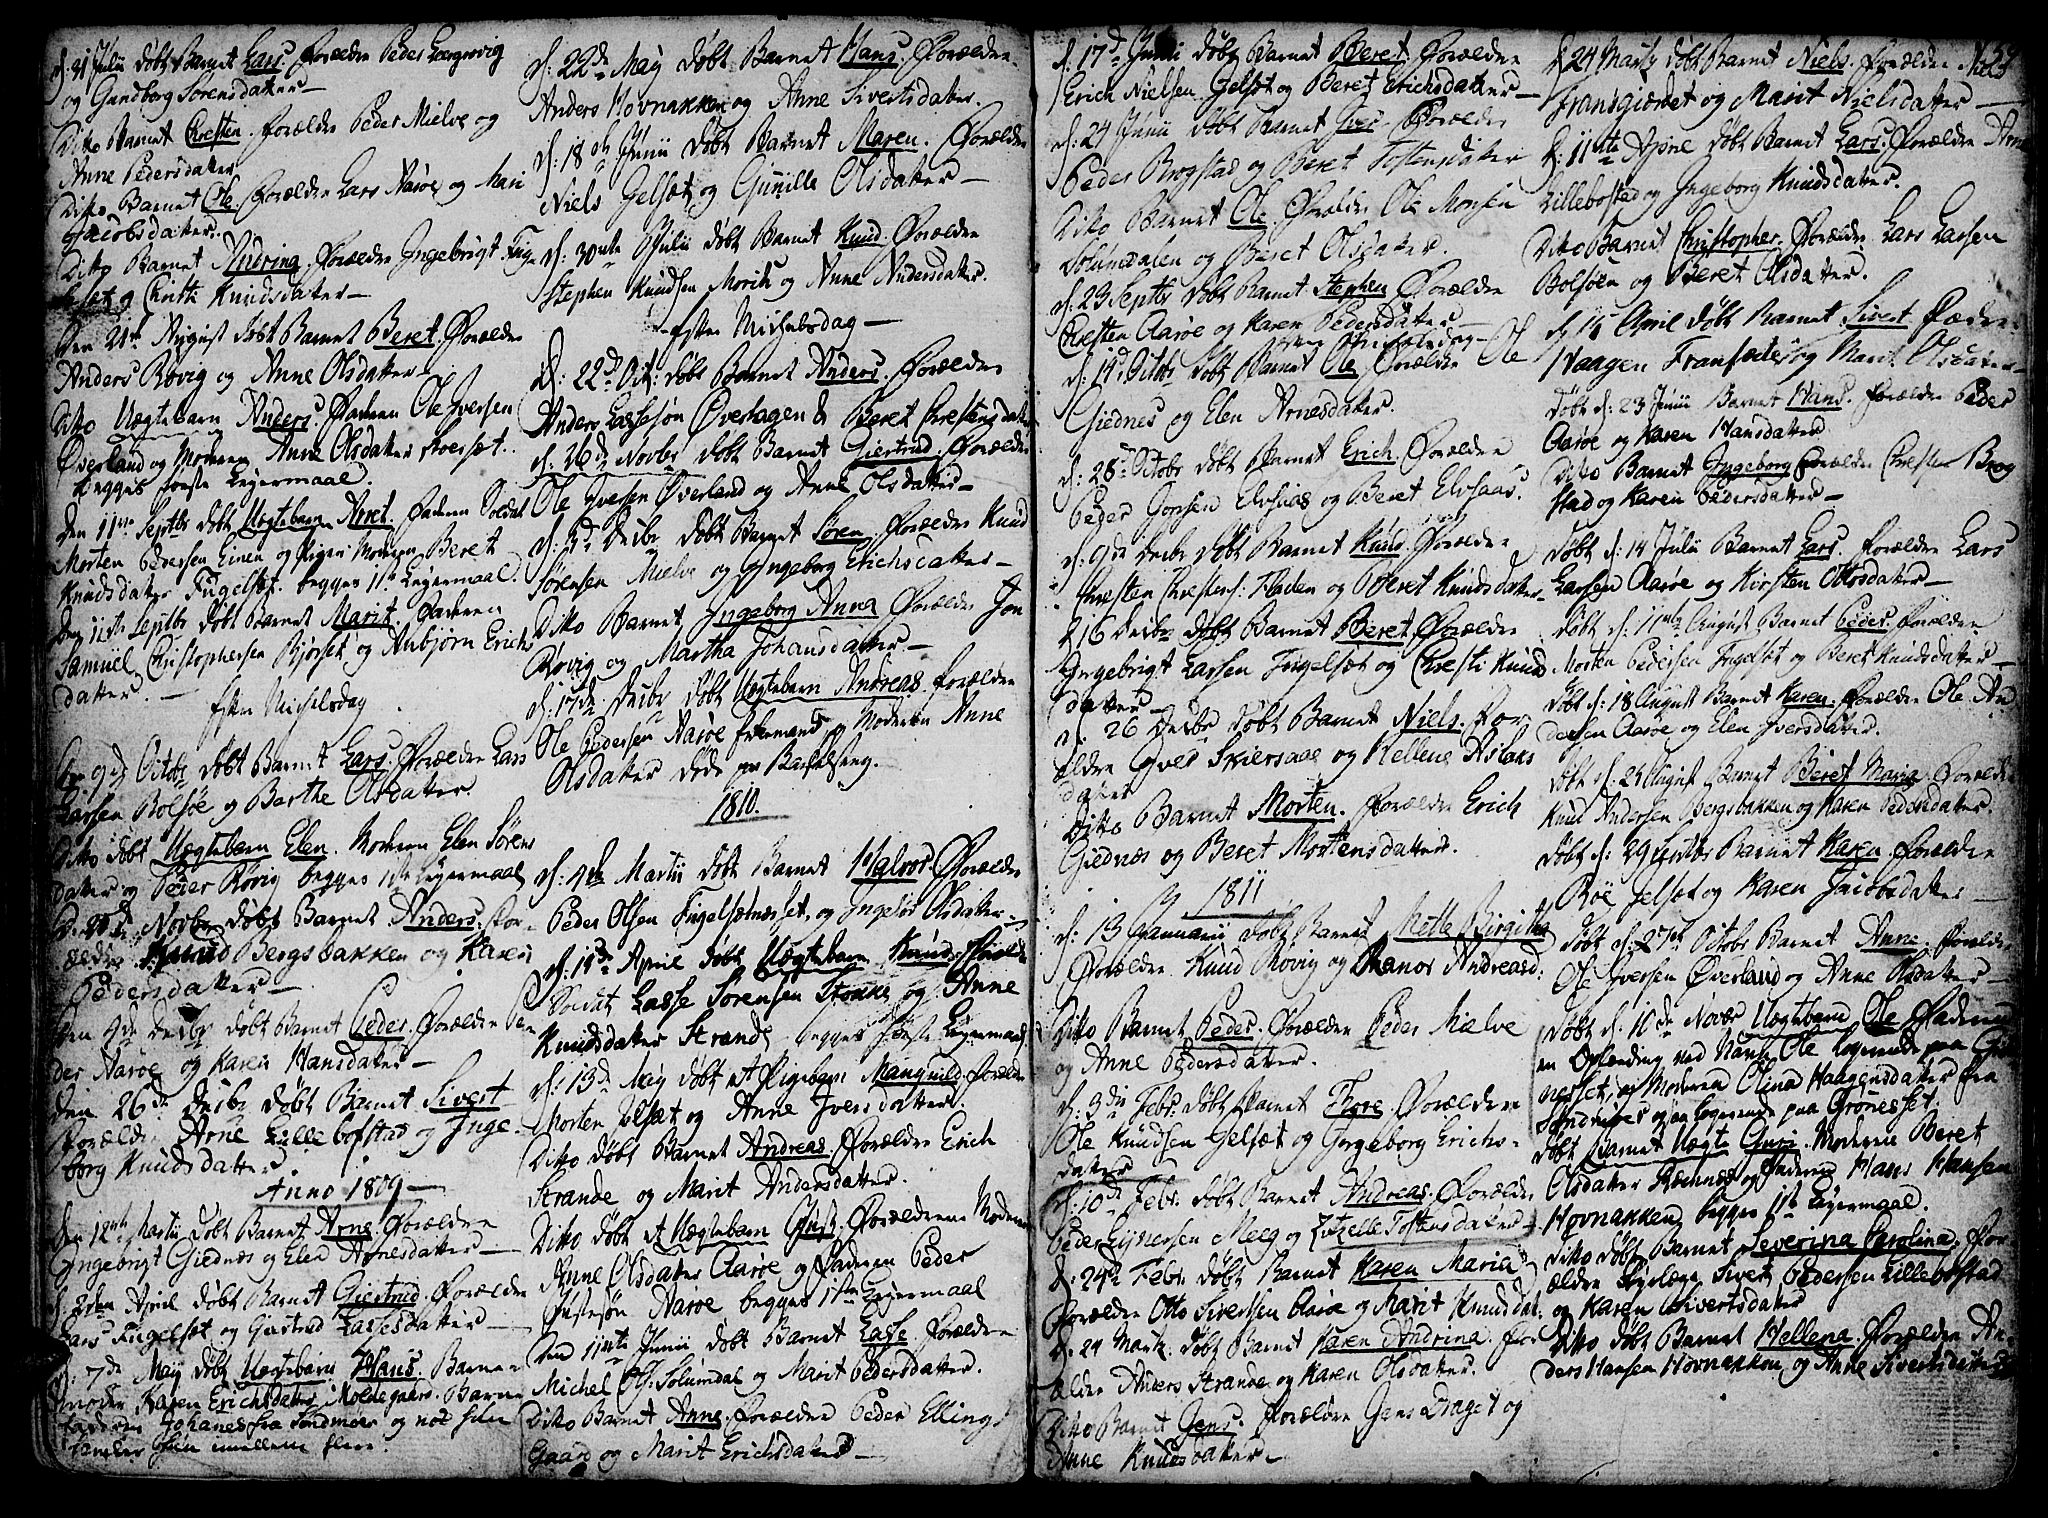 d: 31 Julii døbt Barnet Lars. Forældre Peder
og Gundborg Sørensdatter —
Ditto Barnet Chresten. Forældre Peder Mielve og
Anne Pedersdatter
Ditto Barnet Ole. Forældre Lars Aarøe og Mari
Jacobsdatter.
Ditto Barnet Andrina. Forældre Ingebrigt Fug-
elsæt og Christi Knudsdatter —
Den 21de August døbt Barnet Beret. Forældre
Anders Røvig og Anne Olsdatter —
Ditto Uægtebarn Anders. Faderen Ole Iversen
Øverland og Moderen Anne Olsdatter
begges første Leyermaal.
Den 11te Septbr døbt Uægtebarn Anet. Faderen Soldat
Morten Pedersen Einen og Pigen Moderen Beret
Knudsdatter Fugelsæt. begges 1ste Leyermaal.
Den 11te Septbr døbt Barnet Marit. Faderen
Samuel Christophersen Biørset og Anbjørn Erichs
datter. —
Efter Michelsdag
d: 9de Octobr døbt Barnet Lars. Forældre Lars
Larsen Bolsøe og Berthe Olsdatter.
Ditto døbt Uægtebarn Elen. Moderen Elen Sørens
datter og Peder Røvig begges 1ste Leyermaal
d. Novbr døbt Barnet Anders. For-
ældre Knud Bergsbakken og Karen
Pedersdatter —
Den 4de Decbr døbt Barnet Peder. Forældre Pe-
der Aarøe og Karen Hansdatter —
Den 26de Decbr døbt Barnet Sivert
Forældre Arne Lillebostad og Inge-
borg Knudsdatter.
Anno 1809 —
d. 12te Martii døbt Barnet Arne. Forældre
Ingebrigt Giednæs og Elen Arnesdatter —
d. April døbt Barnet Giertrud. Forældre
Lars Fugelsæt og Giertrud Lassesdatter —
d: 7de May døbt Uægtebarn Hans. Barne-
moder Karen Erichsdatter Moldegaard. Barne
faderen Johanes fra Søndmøer og
flere.
d: 22de May døbt Barnet Hans. Forældre.
Anders Hovnakken og Anne Sivertsdatter.
d: 18de Junii døbt Barnet Maren. Forældre
Niels Gelsæt og Gunille Olsdatter —
d: 30te Julii døbt Barnet Knud. Forældre
Stephen Knudsen Moriths og Anne Andersdatter.
— Efter Michelsdag —
d: 22de Oct: døbt Barnet Anders. Forældre
Anders Lassesøn Øverhagen & Beret Chrestensdatter
d: 26de Novbr døbt Barnet Giertrud. Forældre
Ole Iversen Øverland og Anne Olsdatter —
d: 3de Decbr døbt Barnet Søren. Forældre Knud
Sørensen Mielve og Ingeborg Erichsdatter —
Ditto Barnet Ingeborg Anna Forældre Jon
Røvig og Martha Johansdatter —
d: 17de Decbr døbt Uægtebarn Andreas. Forældre
Ole Pedersen Aarøe og Moderen Anne
Olsdatter døde paa Barselseng.
1810.
d: Martii døbt Barnet Halvor. Forældre
Peder Olsen Fugelsætnesset og Ingebør Olsdatter —
d: 11de April døbt Uægtebarn Knud. Forældre
Soldat Lasse Sørensen Stokke og Anne
Knudsdatter Strande begges første Leyermaal
d: 13de May døbt et Pigebarn Manguild. Forældre
Morten Jelsæt og Anne Iversdatter.
Ditto døbt Barnet Andreas. Forældre Erich
Strande og Marit Andersdatter.
Ditto døbt et Uægtebarn. Forældrene Moderen
Anne Olsdatter Aarøe og Faderen Peder
Aarøe begges 1ste Leyermaal
Den 11te Junii døbt Barnet Lasse. Forældre
Michel Ols: Solumdal og Marit Pedersdatter.
Ditto Barnet Anne. Forældre Peder Ellings
Gaard og Marit Erichsdatter —
d: 17de Junii døbt Barnet Beret. Forældre
Erich Nielsen Gelsæt og Beret Erichsdatter —
d: 24 Junii døbt Barnet Iver. Forældre
Peder Brogstad og Beret Tostensdatter
Ditto Barnet Ole. Forældre Ole Monsen
Solemdalen og Beret Olsdatter.
d: 23 Septbr døbt Barnet Stephen Forældre
Chresten Aarøe og Karen Pedersdatter —
Efter Michelsdag —
d: 14de Octobr døbt Barnet Ole Forældre Ole
Giednes og Elen Arnesdatter.
d: 28de Octobr døbt Barnet Erich. Forældre
Peder Jonsen Elvsaas og Beret Elvsaas.
d: 9de Decbr døbt Barnet Knud. Forældre
Chresten Chrestens: Fladen og Beret Knudsdatter
d. 16 Decbr døbt Barnet Beret. Forældre
Ingebrigt Larsen Fugelsæt og Chresti Knuds
datter —
d. 26 Decbr døbt Barnet Niels. For-
ældre Iver Skiersaae og Hellene Aslaks
datter
Ditto Barnet Morten. Forældre Erich
Giednæs og Beret Mortensdatter.
1811
d: 13 Januarii døbt Barnet Mette Birgitha
Forældre Knud Røvig og Ellianor Andreasd:
Ditto Barnet Peder. Forældre Peder Mælve
og Anne Pedersdatter.
d: 3die Febr. døbt Barnet Thore. Forældre
Ole Knudsen Gelsæt og Ingeborg Erichs-
datter
d: 10de Febr. døbt Barnet Andreas. Forældre
Peder Meeg og Zitzelle Tostensdatter
d: 24de Febr. døbt Barnet Karen Maria
Forældre Otto Sivertsen Aarøe og Marit Knudsdat.
d. 24 Marts. døbt Barnet Karen Andrina. For
ældre Anders Strande og Karen Olsdatter.
Ditto Barnet Jens. Forældre Jens Draget og
Anne Knudsdatter —
d. 24 Marts døbt Barnet Niels. Forældre Niels
Fransgiærdet og Marit Nielsdatter —
d: 11te April døbt Barnet Lars. Forældre Arne
Lillebosted og Ingeborg Knudsdatter.
Ditto Barnet Christopher. Forældre Lars Larsen
Bolsøen og Beret Olsdatter.
d. 15 April døbt Barnet Sivert Forældre
Haagen og Marit Olsdatter —
Døbt d: 23 Junii Barnet Hans. Forældre Peder
Aarøe og Karen Hansdatter
Ditto Barnet Ingeborg Forældre Chresten Brog
stad og Karen Pedersdatter —
Døbt d: 14 Julii Barnet Lars. Forældre Lars
Larsen Aarøe og Kirsten Olsdatter —
Døbt d: 11te August Barnet Peder. Forældre
Morten Pedersen Fugelset og Beret Knudsdatter —
Døbt d: 18 August Barnet Karen. Forældre Ole An
dersen Aarøe og Elen Iversdatter.
Døbt d: 25 August Barnet Beret Maria. Forældre
Knud Andersen Bergsbakken og Karen Pedersdatter.
Døbt d: 29 Septbr Barnet Karen. Forældre
Røe Jelset og Karen Jacobsdatter —
Døbt d: 27de Octobr Barnet Anne. Forældre
Ole Iversen Øverland og Anne Olsdatter —
Døbt d. 10de Novbr Uægtebarn Ole Faderen
en Oplending ved Navn Ole Logerende paa Grø
nesset, og Moderen Olina Haagensdatter fra
Søndmøer og Logerende paa Grønesset.
Døbt Barnet Uægte Guri. Moderen Beret
Olsdatter Ræchnæs og Faderen Hans Hansen
Hovnakken, begges 1ste Leyermaal.
Ditto døbt Barnet Severina Carolina. For
ældre Sivert Pedersen Lillebostad
og Karen Sivertsdatter
Ditto døbt Barnet Hellena. Forældre An-
ders Hansen Hovnakken og Anne Sivertsdatter